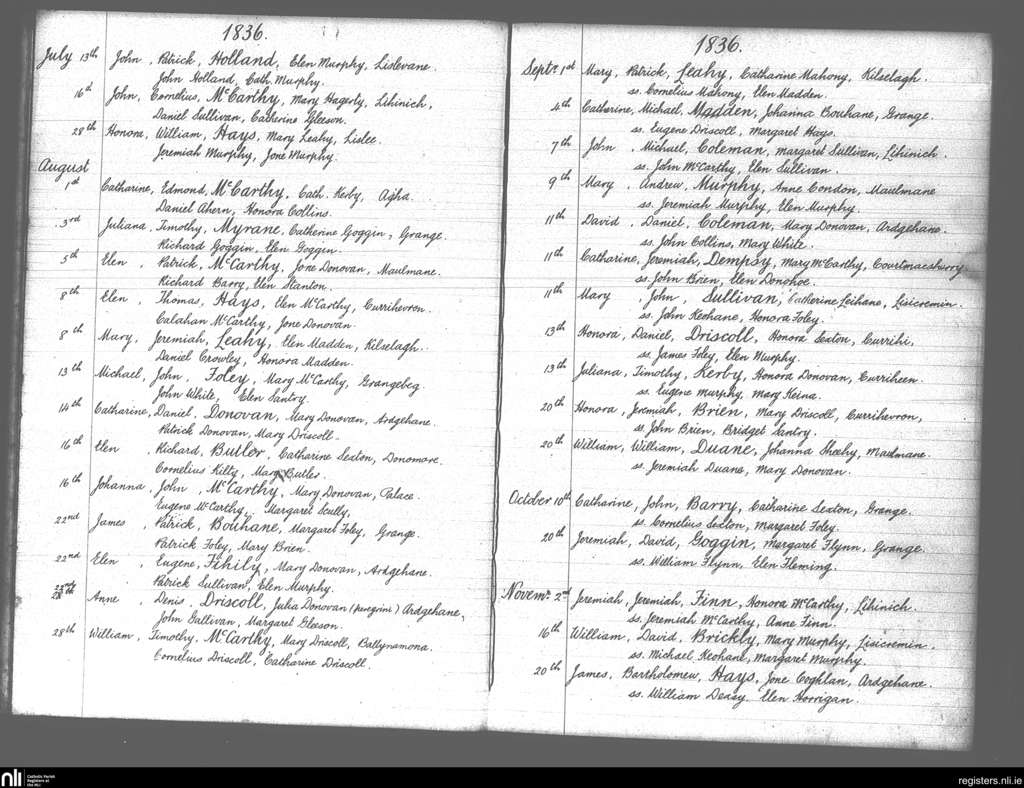 1836.
July 13th John, Patrick, Holland, Elen Murphy, Lislevane.
John Holland, Cath. Murphy.
16th John, Cornelius, McCarthy, Mary Hagerty, Lihinich,
Daniel Sullivan, Catherine Gleeson.
28th Honora, William, Hays, Mary Leahy, Lislee.
Jeremiah Murphy, Jone Murphy.
August
1st Catharine, Edmond, McCarthy, Cath. Kerby, Agha.
Daniel Ahern, Honora Collins.
3rd Juliana, Timothy, Myrane, Catherine Goggin, Grange.
Richard Goggin, Elen Goggin.
5th Elen, Patrick, McCarthy, Jone Donovan, Maulmane.
Richard Barry, Elen Stanton.
8th Elen, Thomas, Hays, Elen McCarthy, Currihevron.
Calahan McCarthy, Jone Donovan.
8th Mary, Jeremiah, Leahy, Elen Madden, Kilselagh.
Daniel Crowley, Honora Madden.
13th Michael, John, Foley, Mary McCarthy, Grangebeg.
John White, Elen Santry.
14th Catharine, Daniel, Donovan, Mary Donovan, Ardgehane.
Patrick Donovan, Mary Driscoll.
16th Elen, Richard, Butler, Catharine Sexton, Donomore.
Cornelius Kilty, Mary Butler.
16th Johanna, John, McCarthy, Mary Donovan, Palace.
Eugene McCarthy, Margaret Scully,
22nd James, Patrick, Bouhane, Margaret Foley, Grange.
Patrick Foley, Mary Brien.
22nd Elen, Eugene, Fihily, Mary Donovan, Ardgehane.
Patrick Sullivan, Elen Murphy.
Anne, Denis, Driscoll, Julia Donovan (peregrini) Ardgehane,
John Gallivan, Margaret Gleeson.
28th William, Timothy, McCarthy, Mary Driscoll, Ballynamona.
Cornelius Driscoll, Catharine Driscoll.
1836.
Septr. 1st Mary, Patrick, Leahy, Catharine Mahony, Kilselagh.
ss. Cornelius Mahony, Elen Madden.
4th Catharine, Michael, Madden, Johanna Bouhane, Grange.
ss. Eugene Driscoll, Margaret Hays.
7th John, Michael, Coleman, Margaret Sullivan, Lihinich.
ss. John McCarthy, Elen Sullivan.
9th Mary, Andrew, Murphy, Anne Condon, Maulmane
ss. Jeremiah Murphy, Elen Murphy.
11th David, Daniel, Coleman, Mary Donovan, Ardgehane.
ss. John Collins, Mary White.
11th Catharine, Jeremiah, Dempsy, Mary McCarthy, Courtmacsherry
ss. John Brien, Elen Donohoe.
11th Mary, John, Sullivan, Catherine Leihane, Lisicremin.
ss. John Keohane, Honora Foley.
13th Honora, Daniel, Driscoll, Honora Sexton, Currihi,
ss. James Foley, Elen Murphy.
13th Juliana, Timothy, Kerby, Honora Donovan, Curriheen.
ss. Eugene Murphy, Mary Keina.
20th Honora, Jeremiah, Brien, Mary Driscoll, Currihevron,
ss. John Brien, Bridget Santry.
20th William, William, Duane, Johanna Sheehy, Maulmane.
ss. Jeremiah Duane, Mary Donovan.
October 10th Catharine, John, Barry, Catharine Sexton, Grange.
ss. Cornelius Sexton, Margaret Foley.
20th Jeremiah, David, Goggin, Margaret Flynn, Grange.
ss. William Flynn, Elen Fleming.
Novemr. 2nd Jeremiah, Jeremiah, Finn, Honora McCarthy, Lihinich.
ss. Jeremiah McCarthy, Anne Finn.
16th William, David, Brickly, Mary Murphy, Lisicremin.
ss. Michael Keohane, Margaret Murphy.
20th James, Bartholomew, Hays, Jone Coghlan, Ardgehane.
ss. William Deasy. Elen Horrigan.
nli
Catholic Parish
Registers at
the NLI
registers.nli.ie